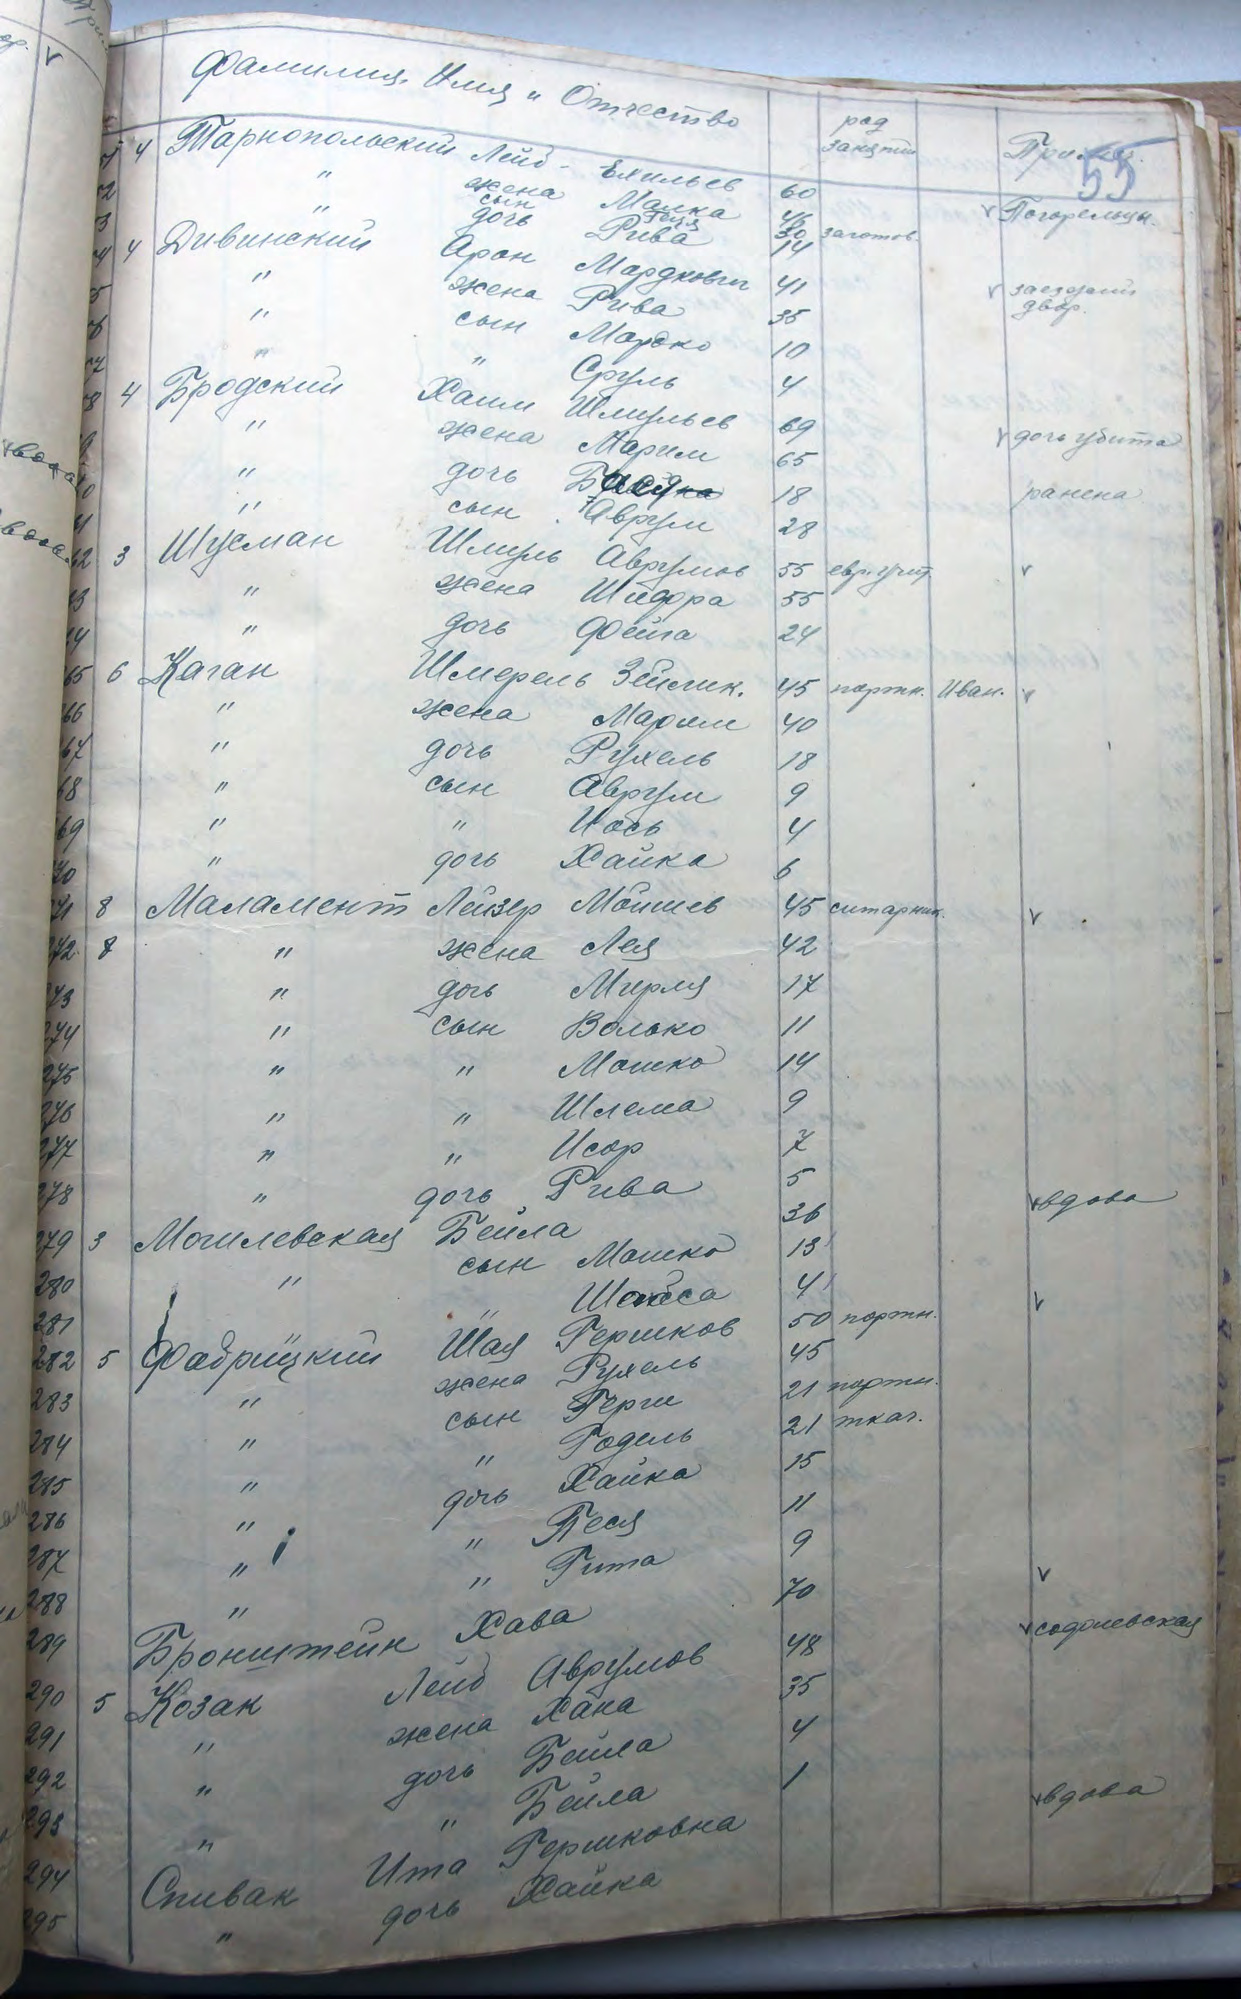 Фамилия, Имя и Отчество род занятий Примеч.
55
4 Тарнопольский Лейб - Ехильев 60 Погорельцы.
" жена Малка
сын
" дочь Рива 14
30 заготов.
4 Дивинский Арон Мордкович 41 заезжий двор.
" жена Рива 35
" сын Мордко 10
" " Сруль 4
4 Бродский Хаим Шмульев 69 дочь убита
" жена Марим 65
" дочь 18 ранена
" сын Аврум 28
3 Шусман Шмуль Аврумов 55 евр. учит.
" жена Шифра 55
" дочь Фейга 24
65 6 Каган Шмерель Зейлик. 45 портн. Иван.
66 " жена Марим 40
67 " дочь Рухель 18
68 " сын Аврум 9
69 " " Иось 4
70 " дочь Хайка 6
71 8 Маламент Лейзер Мошиев 45 ситарник.
272 8 " жена Лея 42
273 " дочь Мирля 17
274 " сын Волько 11
275 " " Мошко 14
276 " " Шлема 9
277 " " Исор 7
278 " дочь Рива 5
279 3 Могилевская Бейла 36 вдова
280 " сын Мошко 13
281 " 4
282 5 Фабрицкий Шая Гершков 50 портн.
283 " жена Рухель 45
284 " сын Герш 21 портн.
285 " " Годель 21 ткач.
286 " дочь Хайка 15
287 " " Песя 11
288 " " Гита 9
289 Бронштейн Хава 70
290 5 Козак Лейб Аврумов 48 содолиевская
291 " жена Хана 35
292 " дочь Бейла 4
293 " " Бейла 1
294 Спивак Ита Гершковна вдова
295 " дочь Хайка